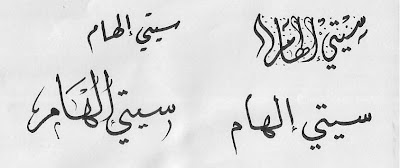 سِيْتِيْ إِلْهَامْ
سيتي إلهام
سيتي إلهام
سيتي إلهام